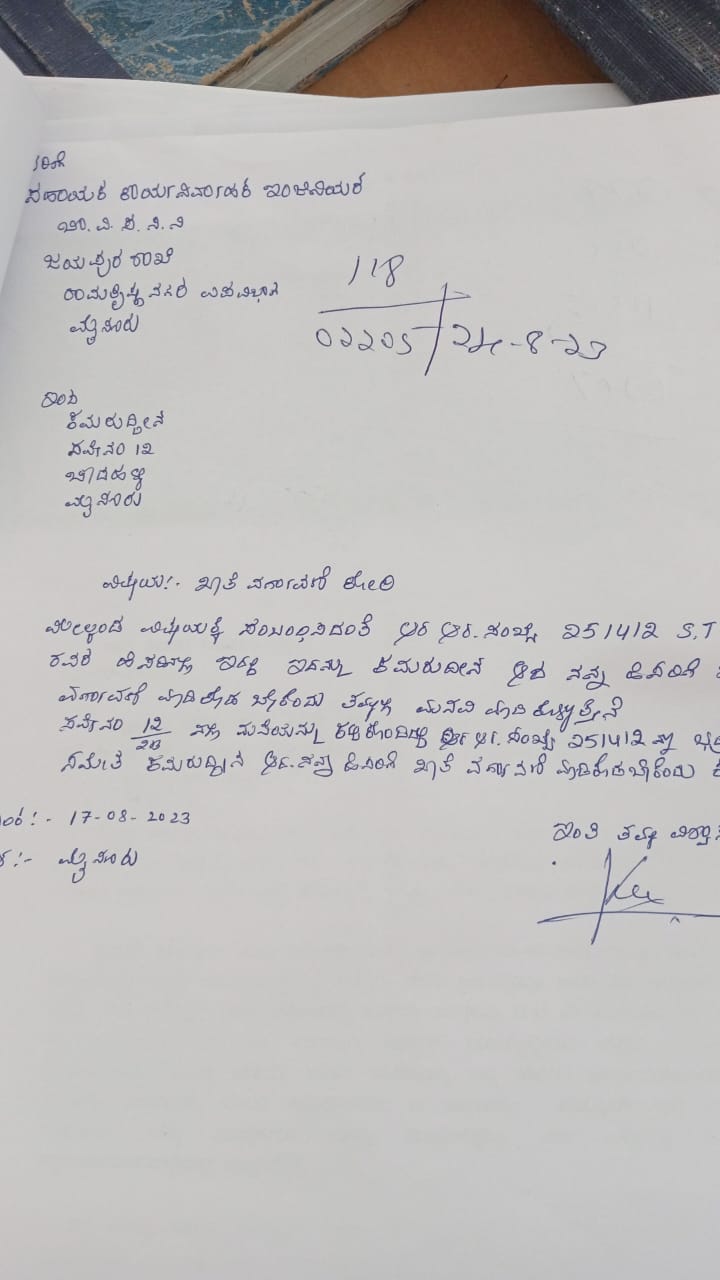 ಸಹಾಯಕ ಕಾರ್ಯನಿರ್ವಾಹಕ ಇಂಜಿನಿಯರ
ಜಯಪುರ ಶಾಖೆ
ರಾಮಕೃಷ್ಣ ನಗರ ಉಪವಿಭಾಗ
ಮೈಸೂರು
118
02205 24-8-23
ಇಂದ
ಕಮರುದ್ದೀನ
ಸರ್ವೇ ನಂ 12
ಮೈಸೂರು
ವಿಷಯ:- ಖಾತೆ ವರ್ಗಾವಣೆ ಕೋರಿ
ಮೇಲ್ಕಂಡ ವಿಷಯಕ್ಕೆ ಸಂಬಂಧಿಸಿದಂತೆ ಆರ ಆರ. ಸಂಖ್ಯೆ 251412 S.T
ಇದನ್ನು ಕಮರುದೀನ ಆದ ನನ್ನ ಹೆಸರಿಗೆ
ವರ್ಗಾವಣೆ ಮಾಡಿಕೊಡ ಬೇಕೆಂದು ತಮ್ಮಲ್ಲಿ ಮನವಿ ಮಾಡಿ ಕೊಳ್ಳುತ್ತೇನೆ
ಸರ್ವೇ ನಂ 12/28 ರಲ್ಲಿ ಮನೆಯನ್ನು ಆರ್. ಆರ್. ಸಂಖ್ಯೆ 251412 ನ್ನು
ಸಮೇತ ಕಮರುದ್ದಿನ ಆದ. ನನ್ನ ಹೆಸರಿಗೆ ಖಾತೆ ವರ್ಗಾವಣೆ ಮಾಡಿಕೊಡಬೇಕೆಂದು
17-08-2023
ಮೈಸೂರು
ಇಂತಿ ತಮ್ಮ